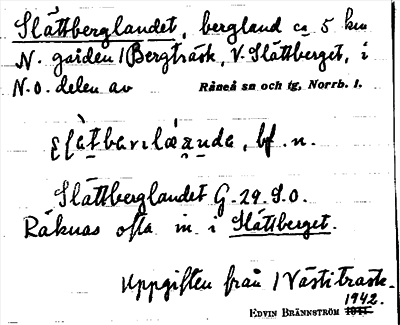 Slåttberglandet, bergland ca 5 km
N. gården 1 Bergträsk, V. Slåttberget, i
N.O. delen av Råneå sn och tg, Norrb. l.
bf. n.
Slåttberglandet G. 29. S.O.
Räknas ofta in i Slåttberget.
Uppgiften från 1 Västiträsk.
1942.
EDVIN BRÄNNSTRÖM 1941